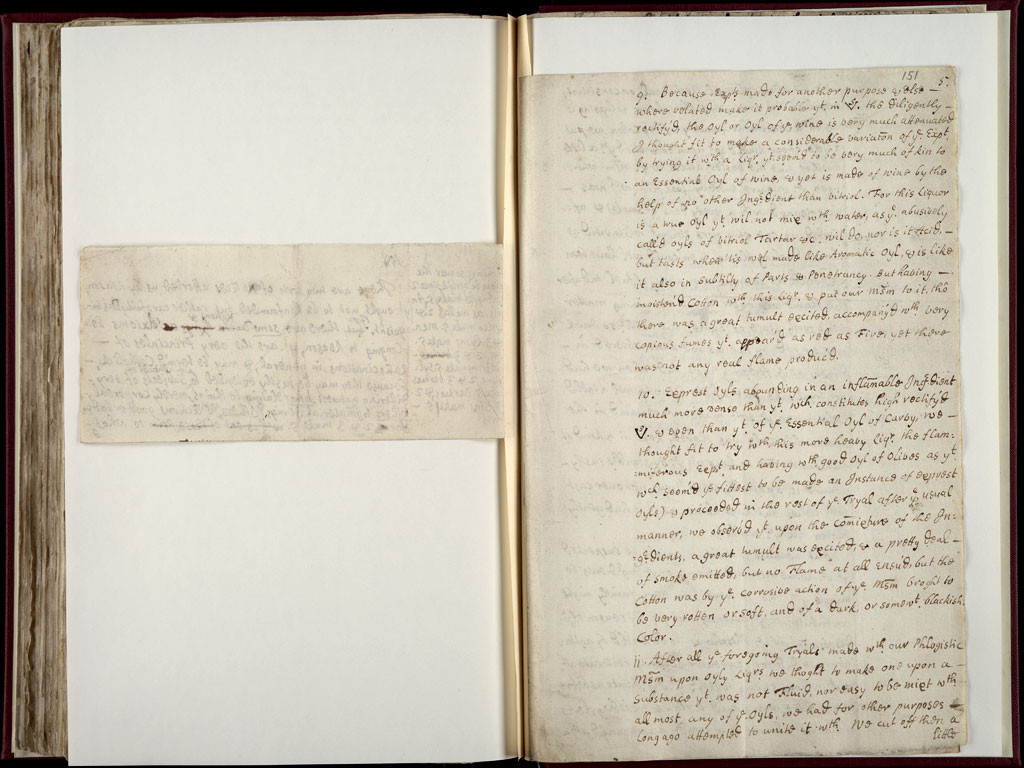 151
5.
9. Because Expts made for another purpose & else—
where related make it probable yt. in the diligently—
rectify'd, the Oyl or Oyl of ye. wine is very much attenuated
I thought fit to make a considerable variation of ye. Expt
by trying it wth a Liqr. yt. seem'd to be very much of kin to
an Essential Oyl of wine, & yet is made of wine by the
help of no other Ingredient than vitriol. For this Liquor
is a true Oyl yt. wil not mix wth. water, as ye. abusively
call'd oyls of vitriol Tartar &c. wil do, nor is it Acid,—
but tasts when tis wel made like Aromatic Oyl, & is like
it also in subtilty of Parts & Penetrancy. But having—
moistend Cotton wth this Liqr. & put our Msm to it, tho
there was a great tumult excited, accompany'd wth very
copious fumes yt. appear'd as red as Fire, yet there
was not any real flame produc'd.
10. Exprest Oyls abounding in an inflamable Ingredient
much more dense than yt. wch. constitutes high rectify'd
& even than yt. of ye. Essential Oyl of Carvy, we—
thought fit to try wth. this more heavy Liqr. the flam:
miferous Expt. and having wth. good Oyl of Olives as yt.
wch. seem'd ye. fittest to be made an Instance of exprest
Oyls) proceeded in the rest of ye. Tryal after ye. usual
manner, we observ'd yt. upon the Comixture of the In-
gredients, a great tumult was excited, & a pretty deal—
of smoke emitted, but no Flame at all Ensu'd, but the
Cotton was by ye. corrosive action of ye. Msm broght to
be very rotten or soft, and of a dark, or somewt. blackish
Color.
11. After all ye. foregoing Tryals made wth. our Phlogistic
Msm upon Oyly Liqrs we thoght to make one upon a—
Substance yt. was not Fluid, nor easy to be mixt wth
all most any of ye. Oyls, we had for other purposes—
long ago attempted to unite it wth. We cut off then a
little